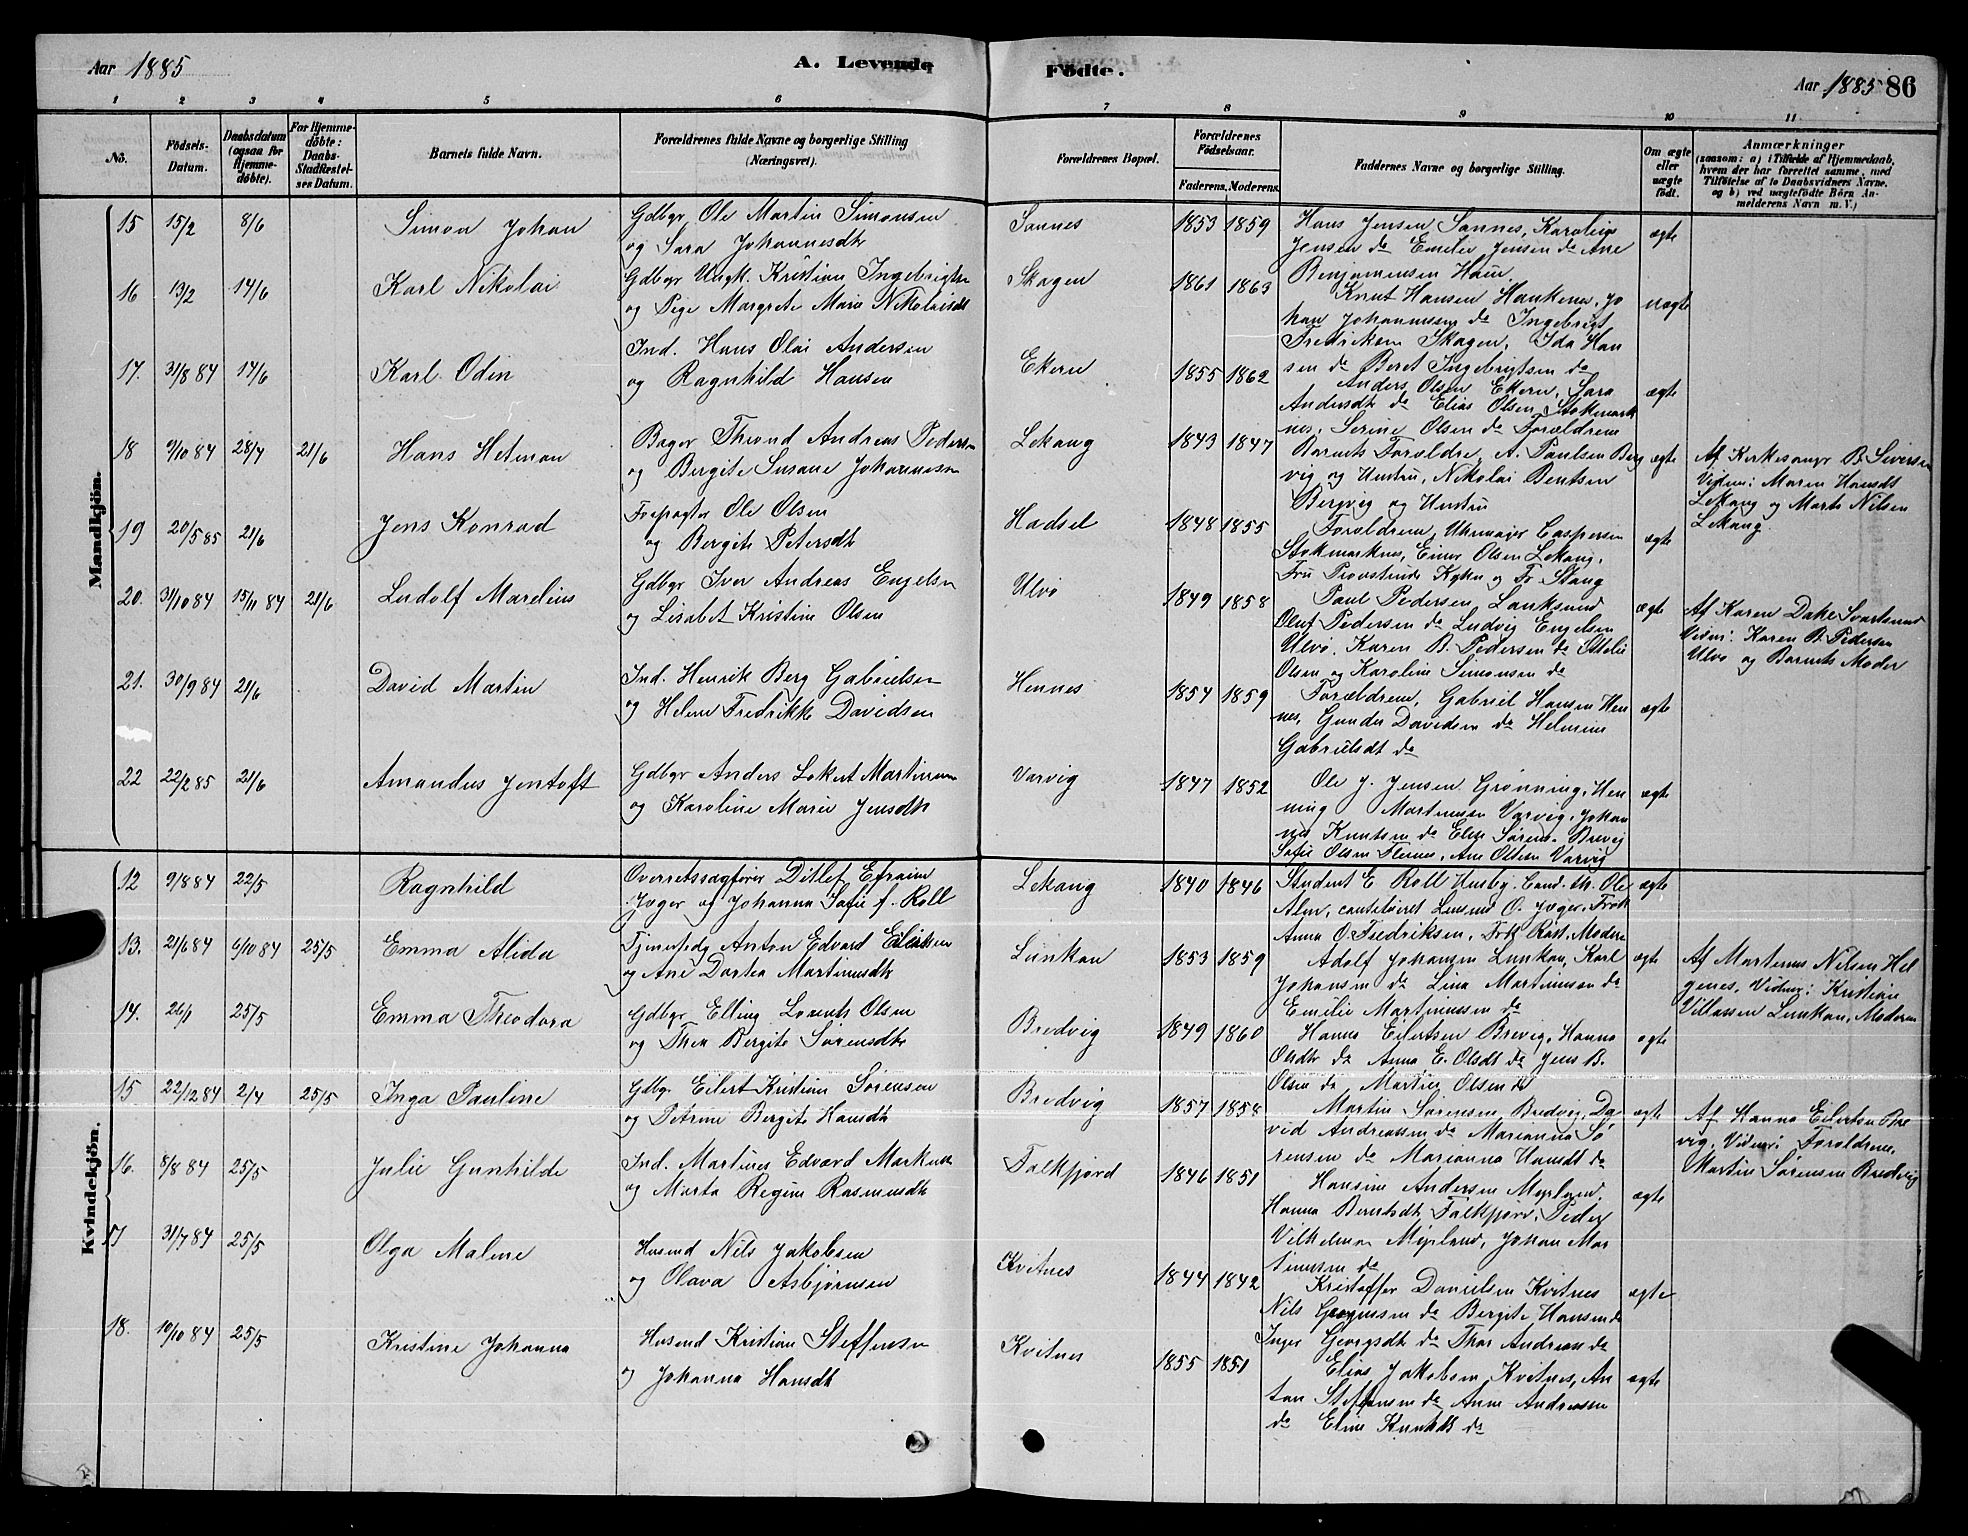 Aar 1885
A. Levende
Födte.
Aar 1885 86
1 2 3 4 5 6 7 8 9 10 11
No.
Födsels-Datum.
Daabsdatum (ogsaa for Hjemme-döbte).
For Hjemme-döbte: Daabs-Stadfæstel-ses Datum.
Barnets fulde Navn.
Forældrenes fulde Navne og borgerlige Stilling (Næringsvei).
Forældrenes Bopæl.
Forældrenes Födselsaar.
Faderens. Moderens.
Faddernes Navne og borgerlige Stilling.
Om ægte eller uægte födt.
Anmærkninger
(saasom: a) i Tilfælde af Hjemmedaab, hvem der har forrettet samme, med Tilföielse af to Daabsvidners Navne, og b) ved uægtefödte Börn Anmelderens Navn m. V.)
Mandkjön.
15 15/2 8/6 Simon Johan
Gdbgr Ole Martin Simonsen
og Sara Johannesdtr
Sannes 1853 1859
Hans Jensen Sannes, Karoline
Jensen do Emelie Jensen do Ane
Benjaminsen Haun
ægte
16 13/2 14/6 Karl Nikolai
Gdbgr Ungk. Kristian Ingebrigtsen
og Pige Margrete Marie Nikolaisdt
Skagen 1861 1863
Knut Hansen Haukenes, Jo
han Johannessen do Ingebrigt
Fredriksen Skagen, Ida Han
sen do Beret Ingebrigtsen do
uægte
17. 31/8 84 14/6 Karl Odin
Ind. Hans Olai Andersen
og Ragnhild Hansen
Ekern 1855 1862
Anders Olsen Ekern, Sara
Andersdtr do Elias Olsen Stokmark
nes, Serine Olsen do Forældrene
ægte
18 9/10 84 28/4 21/6 Hans Hetman
Bager Thrond Andreas Pedersen
og Bergite Susane Johannessen
Lekang 1843 1847
Barnets Forældre, A. Paulsen Berg
vig og Hustru, Nikolai Bentsen
Bergvig og Hustru
ægte
Af Kirkesanger B. Sivertsen
Vidner: Maren Hansdt
Lekang og Marte Nilsen
Lekang.
19 20/5 85 21/6 Jens Konrad
Forpagter Ole Olsen
og Bergite Petersdtr
Hadsel 1848 1855
Forældrene, Uhrmager Caspersen
Stokmarknes, Einer Olsen Lekang,
Fru Provstinde Kyhn og Fr. Stang
ægte
20. 31/10 84 15/11 84 21/6 Ludolf Marelius
Gdbgr Iver Andreas Engelsen
og Lisabet Kristine Olsen
Ulvø 1849 1858
Paul Pedersen Lanksund
Oluf Pedersen do Ludvig Engelsen
Ulvø, Karen B. Pedersen do Ottelie
Olsen og Karoline Simonsen do
ægte
Af Karen Dake Svartsund
Vidner: Karen B. Pedersen
Ulvø og Barnets Moder
21. 30/9 84 21/6 David Martin
Ind. Henrik Berg Gabrielsen
og Helene Fredrikke Davidsen
Hennes 1854 1859
Forældrene, Gabriel Hansen Hen
nes, Gunder Davidsen do Helmine
Gabrielsdt do
ægte
22 22/2 85 21/6 Amandus Jentoft
Gdbgr Anders Lokert Martinussen
og Karoline Marie Jensdtr
Varvig 1847 1852
Ole J. Jensen Grønning, Hen
ning Martinussen Varvig, Johan
nes Knutsen do Elen Sørens. Brevig
Sofie Olsen Flernes, Ane Olsen Varvig
ægte
Kvindekjön.
12 9/8 84 22/5 Ragnhild
Overretssagfører Ditlef Efraim
Jæger og Johanna Sofie f. Roll
Lekang 1840 1846
Student E Roll Husby, Cand. th. Ole
Alm, constitueret Lensmd O. Jæger, Frøk
Anna O. Fredriksen, Frk Roll, Modern
ægte
13. 21/6 84 6/10 84 25/5 Emma Alida
Tjenestedg Anton Edvard Eriksen
og Ane Dortea Martinusdtr
Lunkan 1853 1859
Adolf Johansen Lunkan, Karl
Johansen do Lina Martinussen do
Emilie Martinussen do
ægte
Af Martinus Nilsen Hel
genes, Vidner: Kristian
Villassen Lunkan, Moderen
14. 26/1 25/5 Emma Theodora
Gdbgr Elling Lorents Olsen
og Thea Bergite Sørensdtr
Bredvig 1849 1860
Hanna Eilertsen Brevig, Hanna
Olsdtr do Anna E. Olsdt do Jens B.
Olsen do Martin Olsen do
ægte
15 22/12 84 2/4 25/5 Inga Pauline
Gdbgr Eilert Kristian Sørensen
og Petrine Bergite Hansdtr
Bredvig 1857 1858
Martin Sørensen Bredvig, Da
vid Andreassen do Marianna Sø
rensen do Marianna Hansdt do
ægte
Af Hanna Eilertsen Bre
vig, Vidner: Forældrene,
Martin Sørensen Bredvig
16. 8/8 84 25/5 Julie Gunhilde
Ind. Martines Edvard Markussen
og Marta Regine Rasmusdtr
Falkfjord 1846 1851
Hansine Andersen Myrland,
Hanna Berntsdt Falkfjord, Peder
Vilhelmsen Myrland, Johan Mar
tinussen do
ægte
17 31/7 84 25/5 Olga Malene
Husmd Nils Jakobsen
og Olava Asbjørnsen
Kvitnes 1844 1842
Kristoffer Danielsen Kvitnes
Nils Georgussen do Bergite Hansen do
Inger Georgsdt do Thor Andreassen do
ægte
18. 10/10 84 25/5 Kristine Johanna
Husmd Kristian Steffensen
og Johanna Hansdtr
Kvitnes 1855 1851
Elias Jakobsen Kvitnes, An
ton Steffensen do Anne Andreassen
do Eline Knutsdt do
ægte